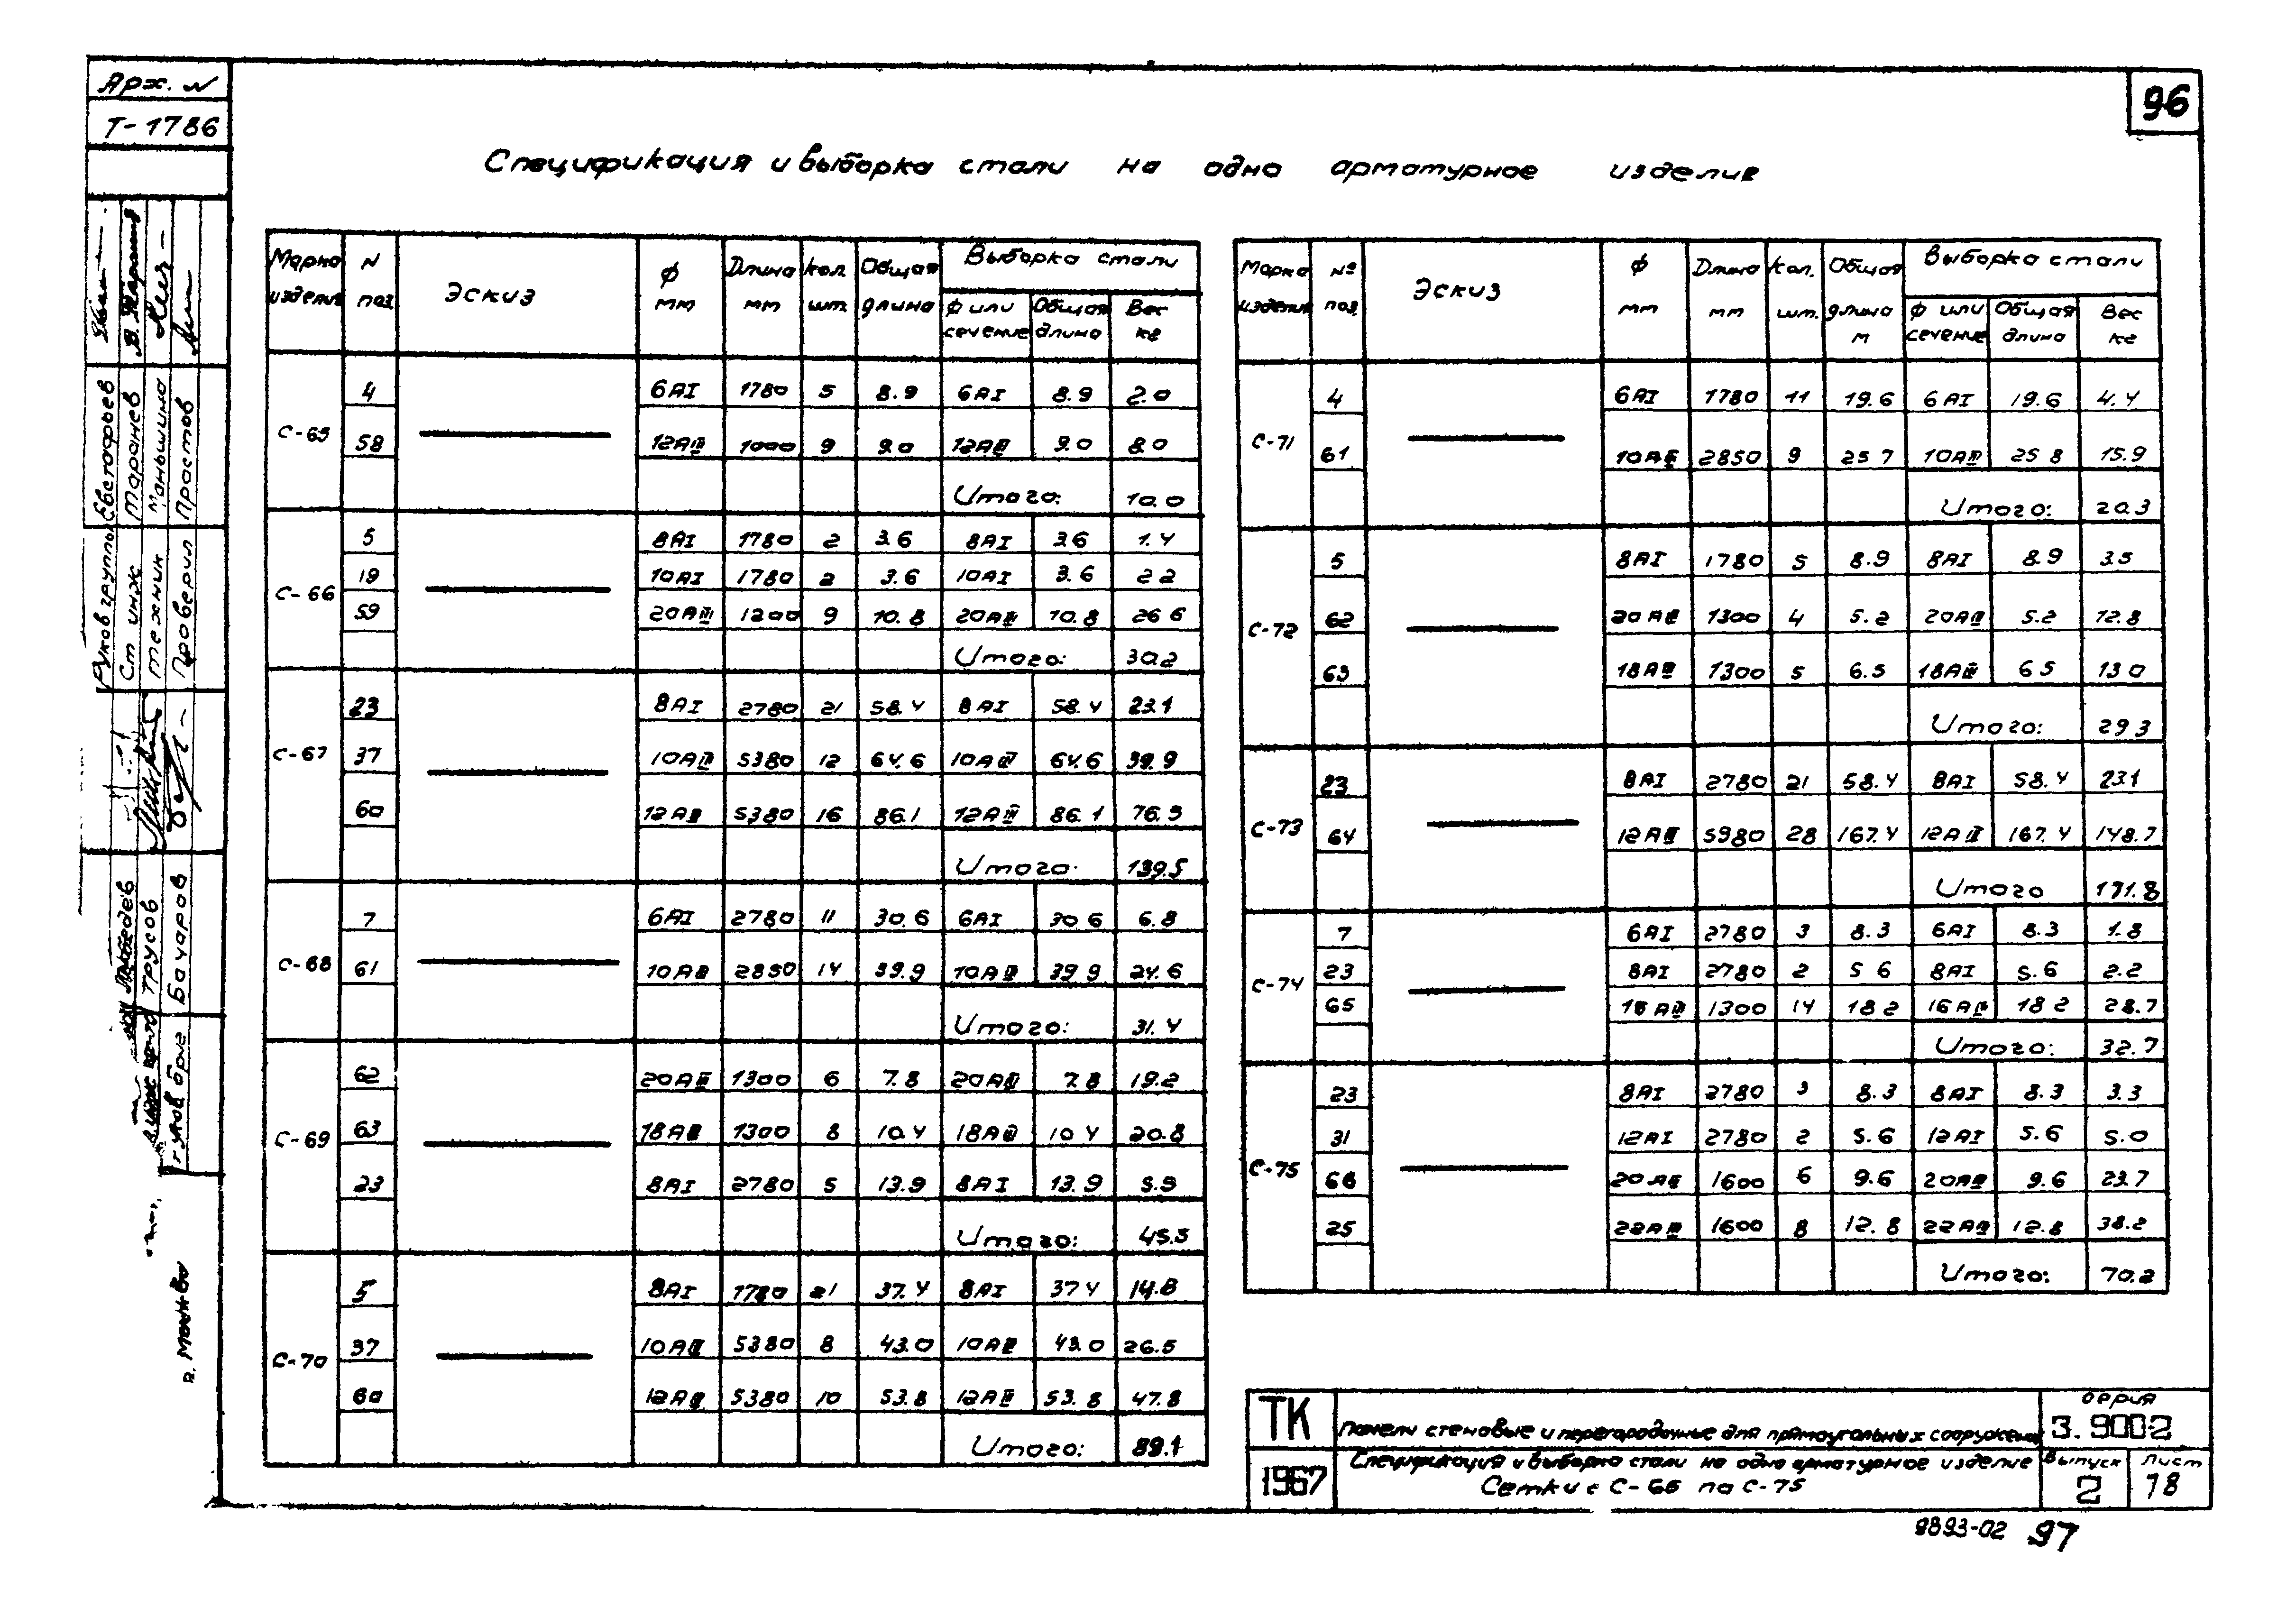 Арх. N
Т-1786
96
Спецификация и выборка стали на одно арматурное изделие
Марка изделия | N поз. | Эскиз | ф мм | Длина мм | Кол. шт. | Общая длина | Выборка стали
ф или сечение | Общая длина | Вес кг
С-65
4 | 6АI | 1780 | 5 | 8.9 | 6АI | 8.9 | 2.0
58 | 12АIII | 1000 | 9 | 9.0 | 12АIII | 9.0 | 8.0
Итого: 10.0
С-66
5 | 8АI | 1780 | 2 | 3.6 | 8АI | 3.6 | 1.4
19 | 10АI | 1780 | 2 | 3.6 | 10АI | 3.6 | 2 2
59 | 20АIII | 1200 | 9 | 10.8 | 20АIII | 10.8 | 26 6
Итого: 30.2
С-67
23 | 8АI | 2780 | 21 | 58.4 | 8АI | 58.4 | 23.1
37 | 10АIII | 5380 | 12 | 64.6 | 10АIII | 64.6 | 39.9
60 | 12АIII | 5380 | 16 | 86.1 | 12АIII | 86.1 | 76.5
Итого: 139.5
С-68
7 | 6АI | 2780 | 11 | 30.6 | 6АI | 30 6 | 6.8
61 | 10АIII | 2850 | 14 | 39.9 | 10АIII | 39 9 | 24.6
Итого: 31.4
С-69
62 | 20АIII | 1300 | 6 | 7.8 | 20АIII | 7.8 | 19.2
63 | 18АIII | 1300 | 8 | 10.4 | 18АIII | 10 4 | 20.8
23 | 8АI | 2780 | 5 | 13.9 | 8АI | 13.9 | 5.5
Итого: 45.5
С-70
5 | 8АI | 1780 | 21 | 37.4 | 8АI | 37 4 | 14.8
37 | 10АIII | 5380 | 8 | 43.0 | 10АIII | 43.0 | 26.5
60 | 12АIII | 5380 | 10 | 53.8 | 12АIII | 53.8 | 47.8
Итого: 89.1
Марка изделия | № поз. | Эскиз | ф мм | Длина мм | Кол. шт. | Общая длина м | Выборка стали
ф или сечение | Общая длина | Вес кг
С-71
4 | 6АI | 1780 | 11 | 19.6 | 6АI | 19.6 | 4.4
61 | 10АIII | 2850 | 9 | 25 7 | 10АIII | 25 8 | 15.9
Итого: 20.3
С-72
5 | 8АI | 1780 | 5 | 8.9 | 8АI | 8.9 | 3.5
62 | 20АIII | 1300 | 4 | 5.2 | 20АIII | 5.2 | 12.8
63 | 18АIII | 1300 | 5 | 6.5 | 18АIII | 6 5 | 13 0
Итого: 29 3
С-73
23 | 8АI | 2780 | 21 | 58.4 | 8АI | 58.4 | 23.1
64 | 12АIII | 5980 | 28 | 167.4 | 12АIII | 167.4 | 148.7
Итого 171.8
С-74
7 | 6АI | 2780 | 3 | 8.3 | 6АI | 8.3 | 1.8
23 | 8АI | 2780 | 2 | 5 6 | 8АI | 5.6 | 2.2
65 | 16АIII | 1300 | 14 | 18 2 | 16АIII | 18 2 | 28.7
Итого: 32.7
С-75
23 | 8АI | 2780 | 3 | 8.3 | 8АI | 8.3 | 3.3
31 | 12АI | 2780 | 2 | 5.6 | 12АI | 5.6 | 5.0
66 | 20АIII | 1600 | 6 | 9.6 | 20АIII | 9.6 | 23.7
25 | 22АIII | 1600 | 8 | 12.8 | 22АIII | 12.8 | 38.2
Итого: 70.2
Руков группы Евстафьев
Ст инж Таранев
Техник Маньшина
Проверил Простов
Лебедев
Трусов
Руков бриг Бочаров
г. Москва
ТК
1967
Панели стеновые и перегородочные для прямоугольных сооружений
Спецификация и выборка стали на одно арматурное изделие
Сетки с С-65 по С-75
серия
3.900-2
Выпуск
2
лист
78
9893-02 97